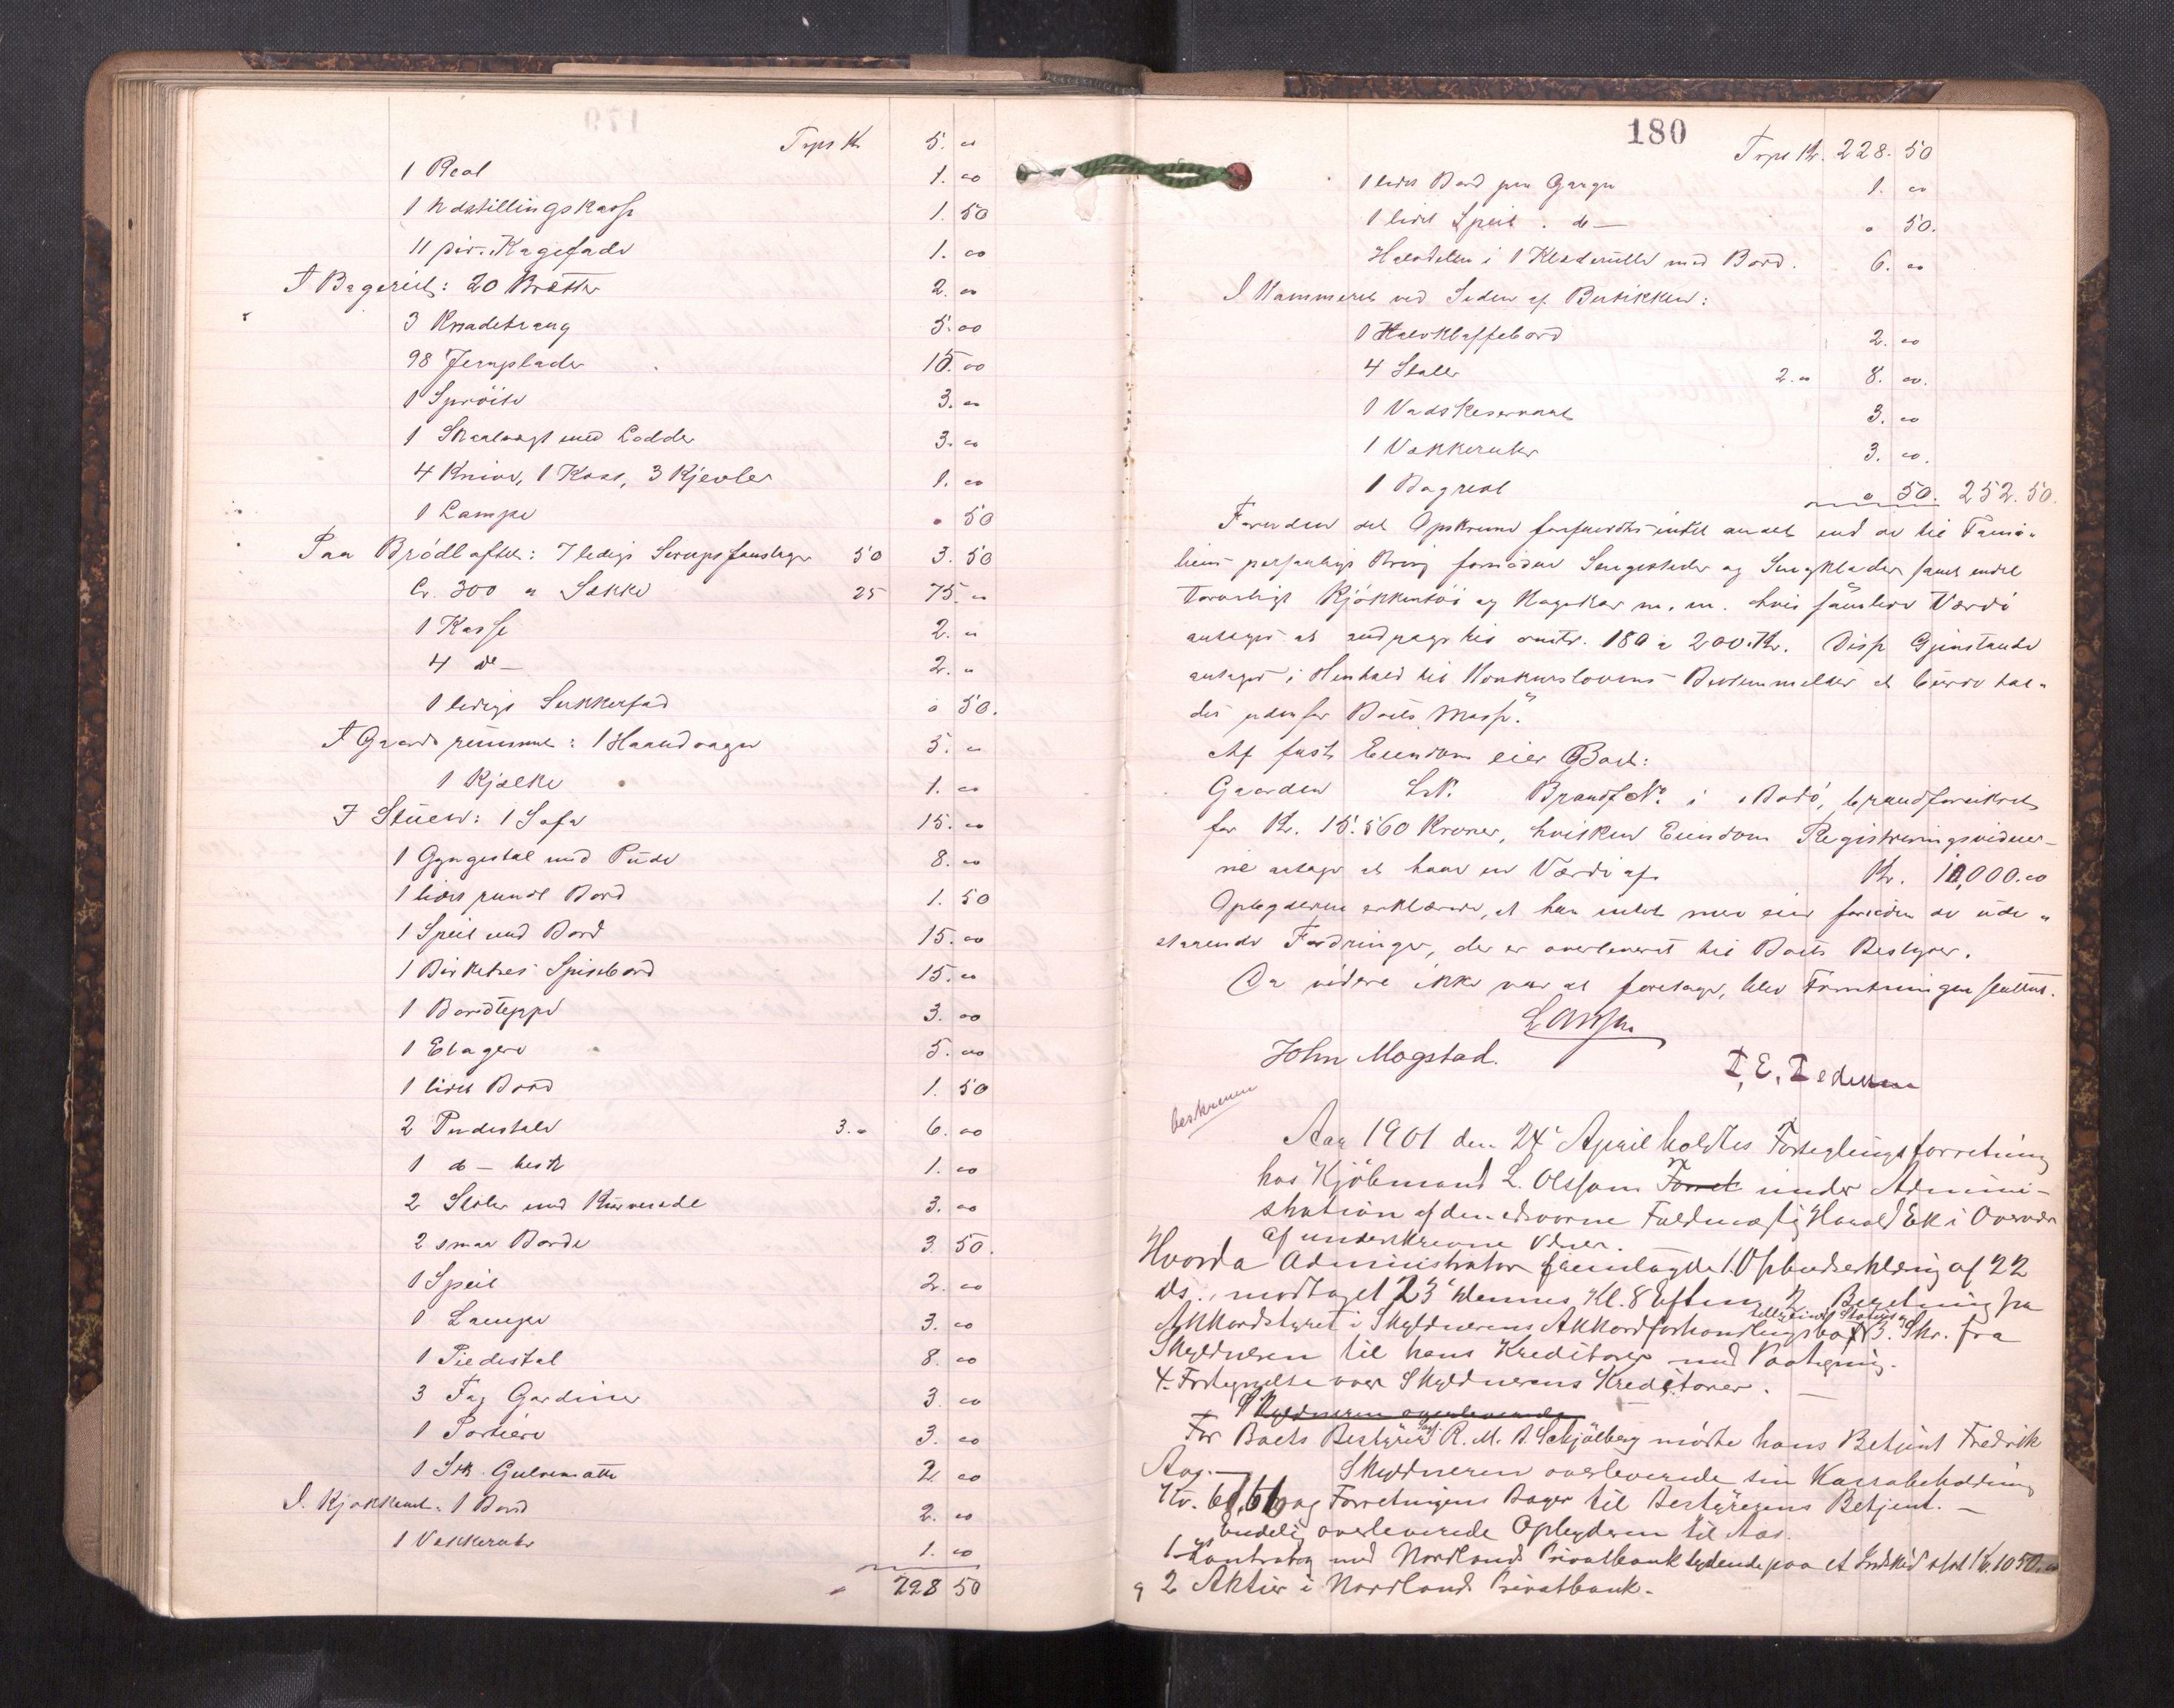 179
Trpt Kr. 5. "
1 Reol 1. "
1 Udstillingskasse 1. 50
11 div. Kagefade 1. "
I Bageriet: 20 Brætter 2. "
3 Knadetraug 5. "
98 Jernplader 15. "
1 Sprøite 3. "
1 Skaalvægt med Lodder 3. "
4 Knive, 1 Kost, 3 Kjevler 1. "
1 Lampe " 50
Paa Brødloftet: 7 ledige Sirupsfoustager 50 3. 50
Cr. 300 " Sække 25 75. "
1 Kasse 2. "
4 do — 2. "
1 ledigt Sukkerfad " 50.
I Gaardsrummet: 1 Haandvogn 5. "
1 Kjælke 1. "
I Stuen: 1 Sofa 15. "
1 Gyngestol med Pude 8. "
1 lidet rundt Bord 1. 50
1 Speil med Bord 15. "
1 Birketræs Spisebord 15. "
1 Bordteppe 3. "
1 Etagere 5. "
1 lidet Bord 1. 50
2 Pindestole 3. " 6. "
1 do — 1. "
2 Stoler med Kurvesæde 3. "
2 smaa Borde 3. 50.
1 Speil 2. "
1 Lampe 3. "
1 Piedestal 8. "
3 Fag Gardiner 3. "
1 Portiere 3. "
1 Stk. Gulvmatte 2. "
I Kjøkkenet: 1 Bord 2. "
1 Vækkeruhr 1. "
" 228 50
180
Trpt Kr. 228. 50
1 lidet Bord paa Gangen 1. "
1 lidet Speil . do — " 50.
Halvdelen i 1 Klæderulle med Bord. 6. "
I Kammeret ved Siden af Butikken:
1 Halvklaffebord 2. "
4 Stoler 2. " 8. "
1 Vadskeservant 3. "
1 Vækkeruhr 3. "
1 Bagreol " 50. 252. 50.
Foruden det Opskrevne forefandtes intet andet end de til Fami-
liens personlige Brug fornødne Sengesteder og Sengklæder samt endel
tarveligt Kjøkkentøi og Kogekar m. m. hvis samlede Værdi
antages at andrage til omtr. 180 a 200 Kr. Disse Gjenstande
antages i Henhold til Konkurslovens Bestemmelser at burde hol-
des udenfor Boets Masse.
Af fast Eiendom eier Boet:
Gaarden L.N. Brandf. No i Bodø, brandforsikret
for Kr. 15.560 Kroner, hvilken Eiendom Registreringsvidner-
ne antager at have en Værdi af Kr. 10,000."
Opbyderen erklærede, at han intet mer eier foruden de ude-
staaende Fordringer, der er overleveret til Boets Bestyrer.
Da videre ikke var at foretage, blev Forretningen sluttet.
John Mogstad.
P. E. Pedersen
beskreven
Aar 1901 den 24' April holdtes Forseglingsforretning
hos Kjøbmand L. Olsson under Admini-
stration af den edsvorne Fuldmægtig Harald Ek i Overvær
af underskrevne Vidner.
Hvorda Administrator fremlagde 1. Opbudserklæring af 22
ds., modtaget 23' dennes Kl. 8 Eftm. 2. Beretning fra
Akkordstyret i Skyldnerens Akkordforhandlingsbo 3. Skr. fra
Skyldneren til hans Kreditorer med Paategning.
4. Fortegnelse over Skyldnerens Kreditorer. —
Skyldneren overleverede
For Boets Bestyrer R. M. B. Schjølberg mødte hans Betjent Fredrik
Aag. — Skyldneren overleverede sin Kassabeholdning
Kr. og Forretningens Bøger til Bestyrerens Betjent. —
Endelig overleverede Opbyderen til Aas.
1 Kontrabog med Nordlands Privatbank lydende paa et Indskud stort Kr. 1050."
og 2 Aktier i Nordlands Privatbank. -